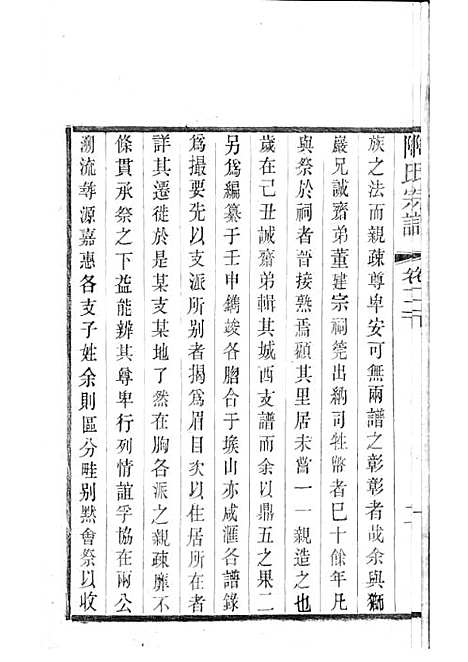 陳氏宗譜 卷二
族之法而親疎尊卑安可無兩譜之彰彰者哉余與獅
巖兄誠齋弟董建宗祠筦出納司牲幣者巳十餘年凡
與祭於祠者晉接熟焉顧其里居未嘗一一親造之也
歲在己丑誠齋弟輯其城西支譜而余以鼎五之果二
另爲編纂于壬申鐫竣各房合于埃山亦咸滙各譜錄
爲撮要先以支派所别者揭爲眉目次以住居所在者
詳其遷徙於是某支某地了然在胸各派之親疎靡不
條貫承祭之下益能辨其尊卑行列情誼孚協在兩公
溯流尋源嘉惠各支子姓余則區分畦别默會祭以收